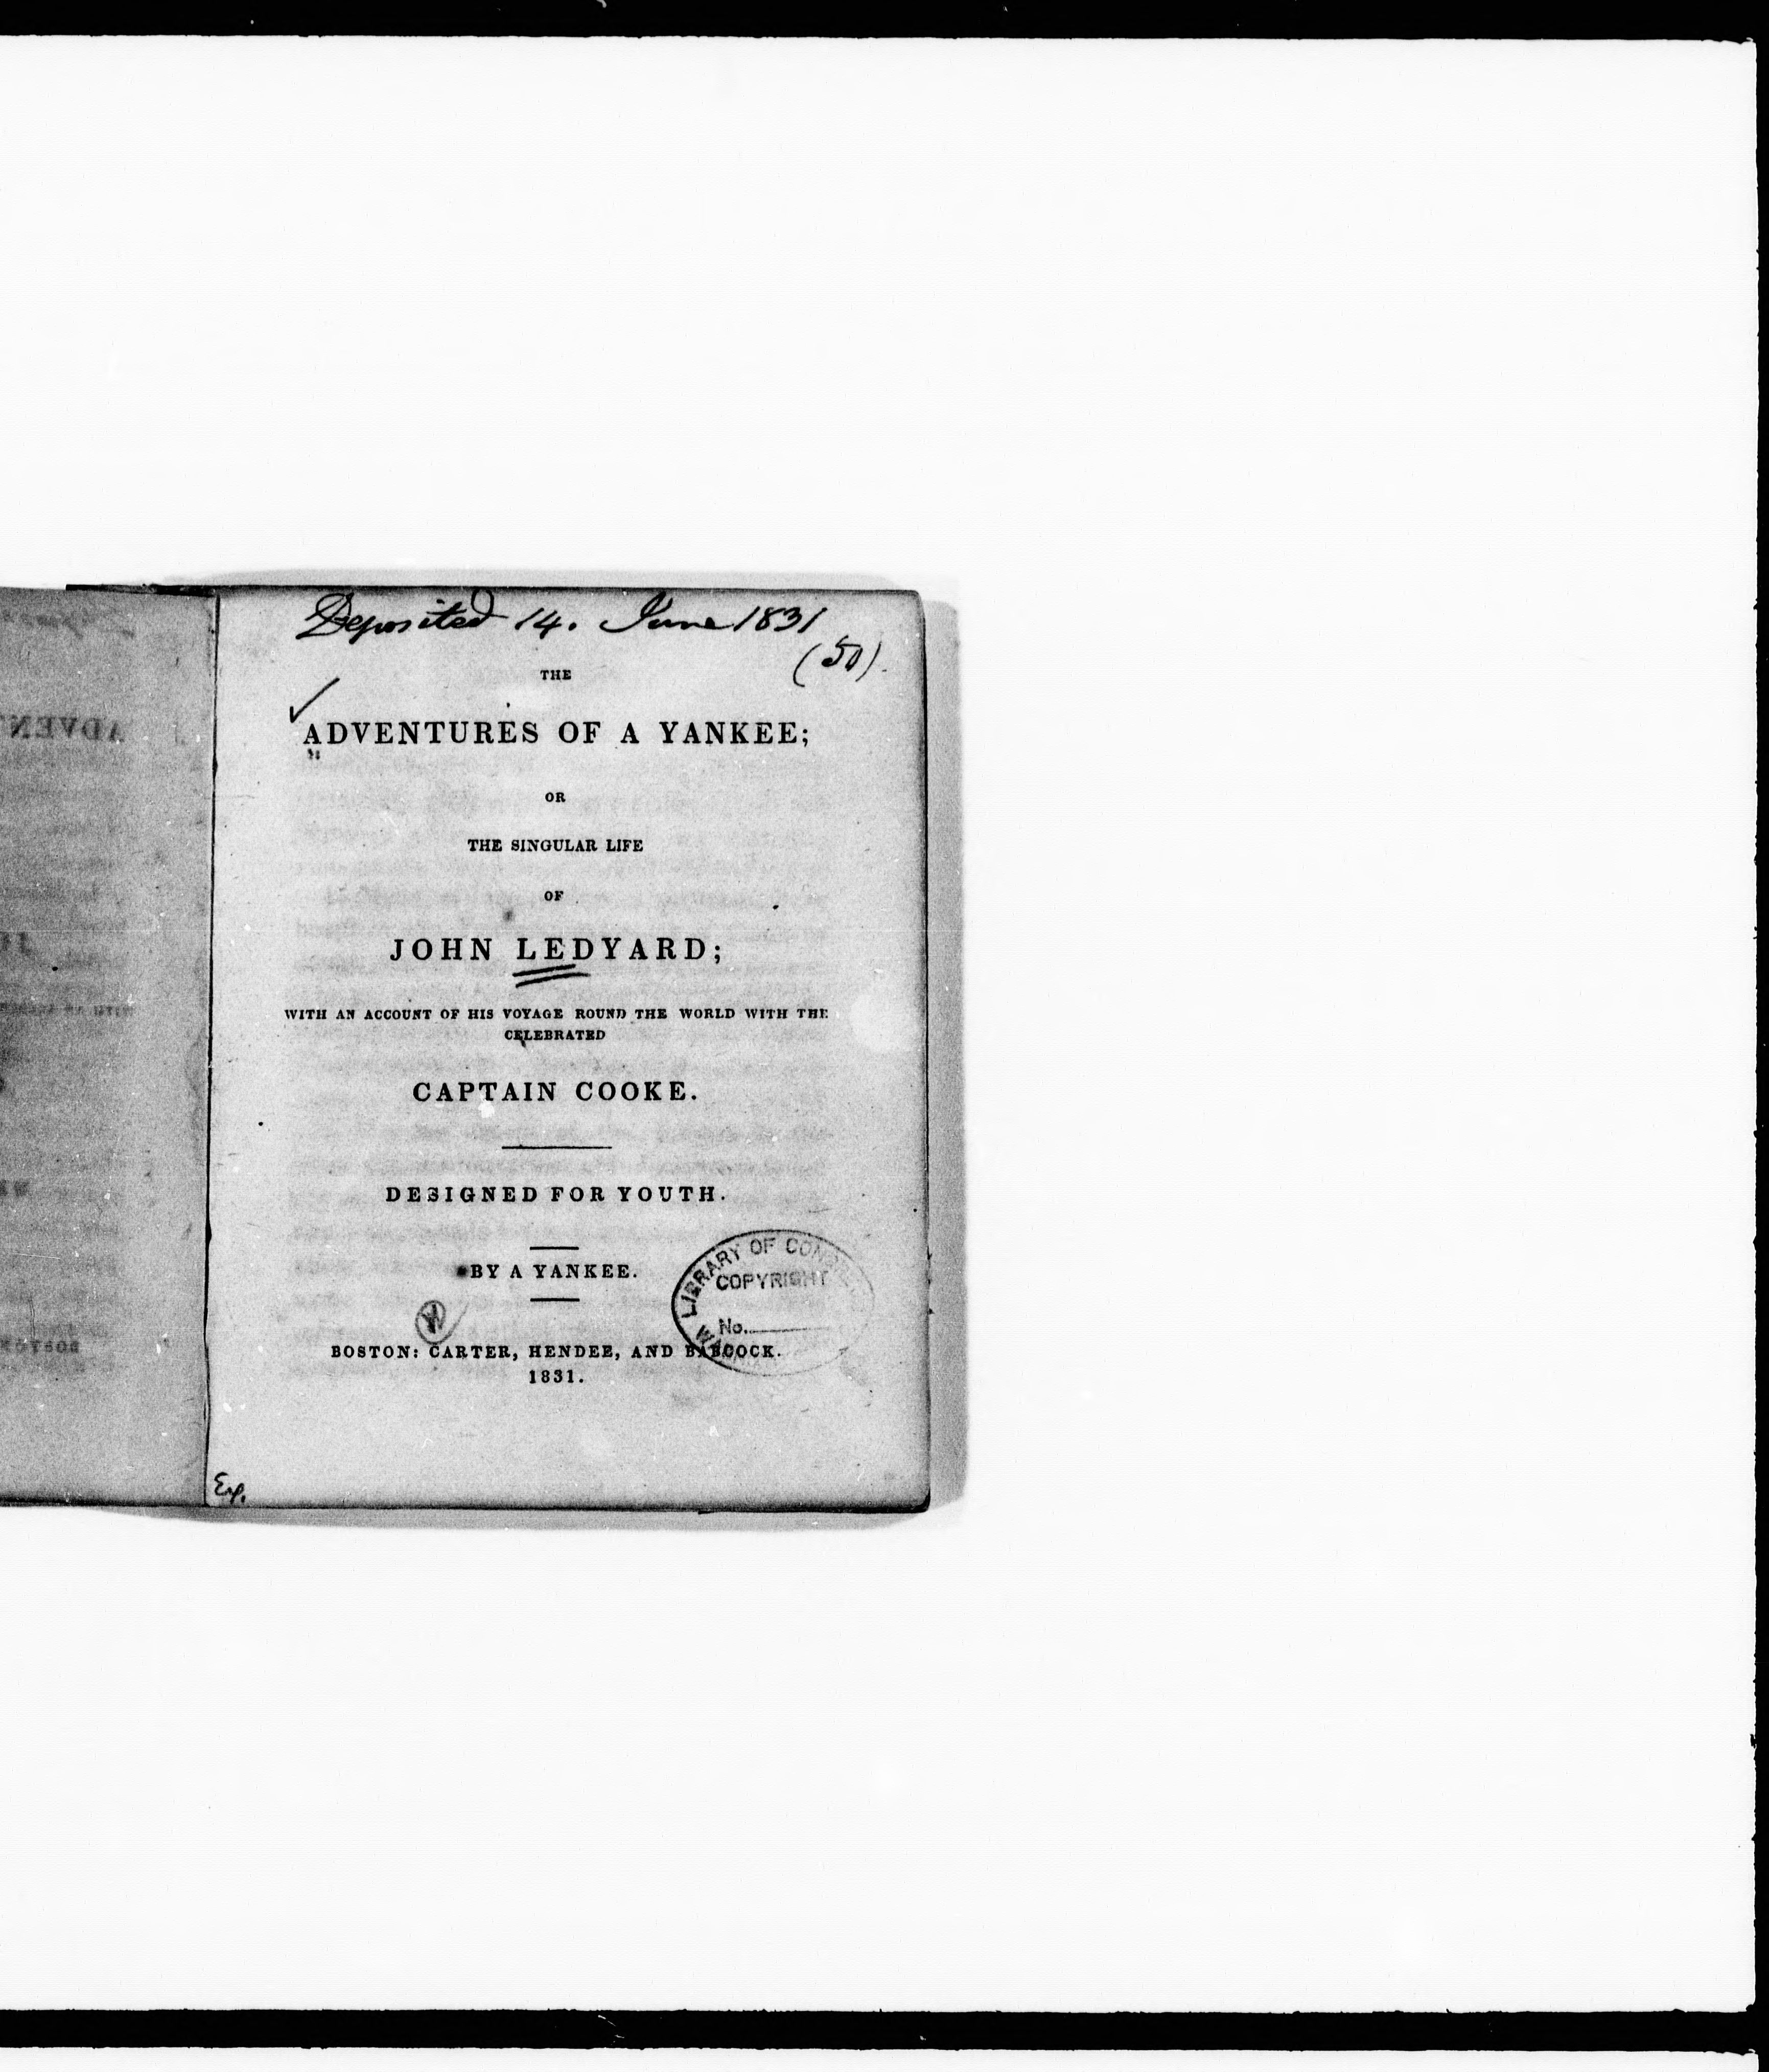 Deposited 14. June 1831
(50).
THE
ADVENTURES OF A YANKEE;
OR
THE SINGULAR LIFE
OF
JOHN LEDYARD;
WITH AN ACCOUNT OF HIS VOYAGE ROUND THE WORLD WITH THE
CELEBRATED
CAPTAIN COOKE.
DESIGNED FOR YOUTH.
BY A YANKEE.
LIBRARY OF
COPYRIGHT
No.
BOSTON: CARTER, HENDEE, AND BABCOCK.
1831.